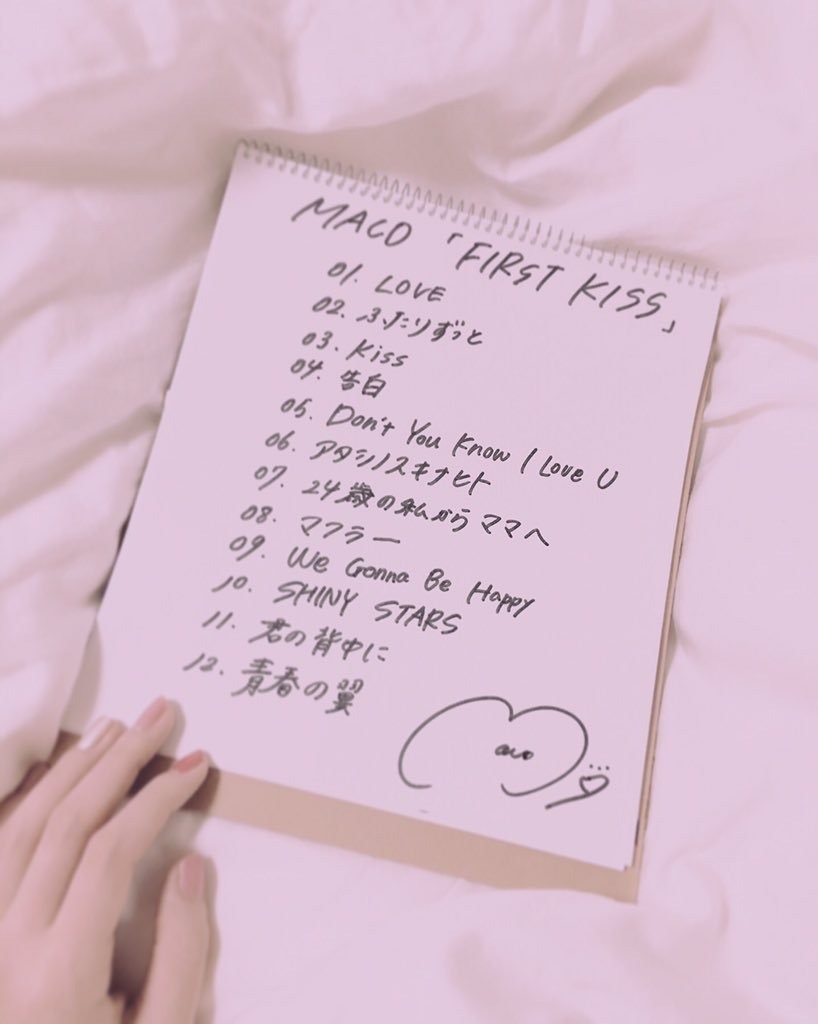 MACO「FIRST KISS」
01. LOVE
02. ふたりずっと
03. Kiss
04. 告白
05. Don't You Know I Love U
06. アタシノスキナヒト
07. 24歳の私からママへ
08. マフラー
09. We Gonna Be Happy
10. SHINY STARS
11. 君の背中に
12. 青春の翼
Maco